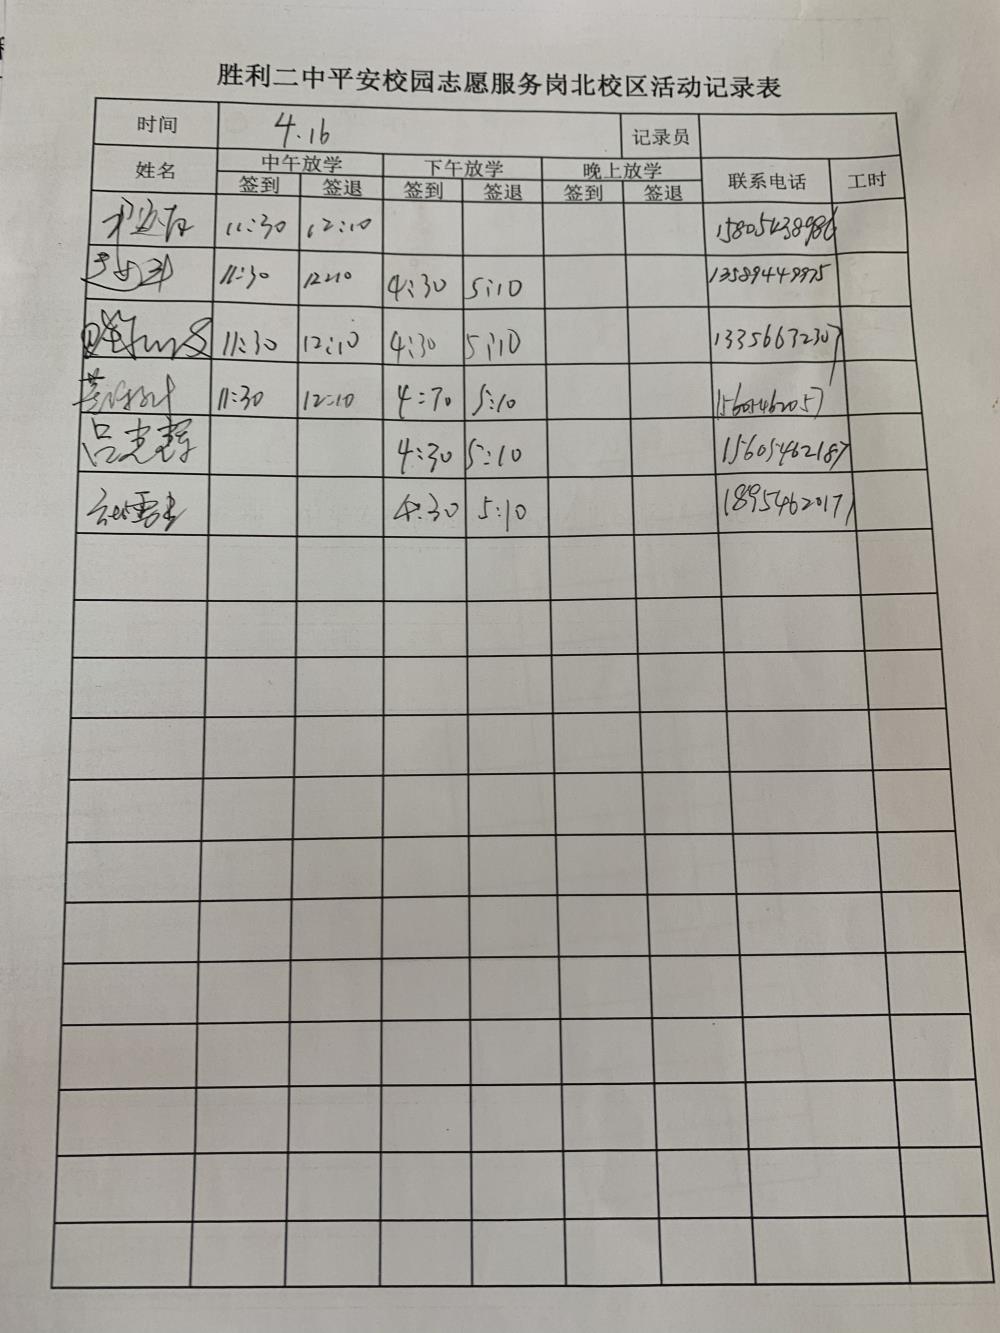 胜利二中平安校园志愿服务岗北校区活动记录表
时间 4.16 记录员
姓名 中午放学 下午放学 晚上放学 联系电话 工时
签到 签退 签到 签退 签到 签退
11:30 12:10 15805438986
11:30 12:10 4:30 5:10 13589449975
11:30 12:10 4:30 5:10 13356632307
11:30 12:10 4:30 5:10 15605462057
吕志辉 4:30 5:10 15605462187
4:30 5:10 18954620171